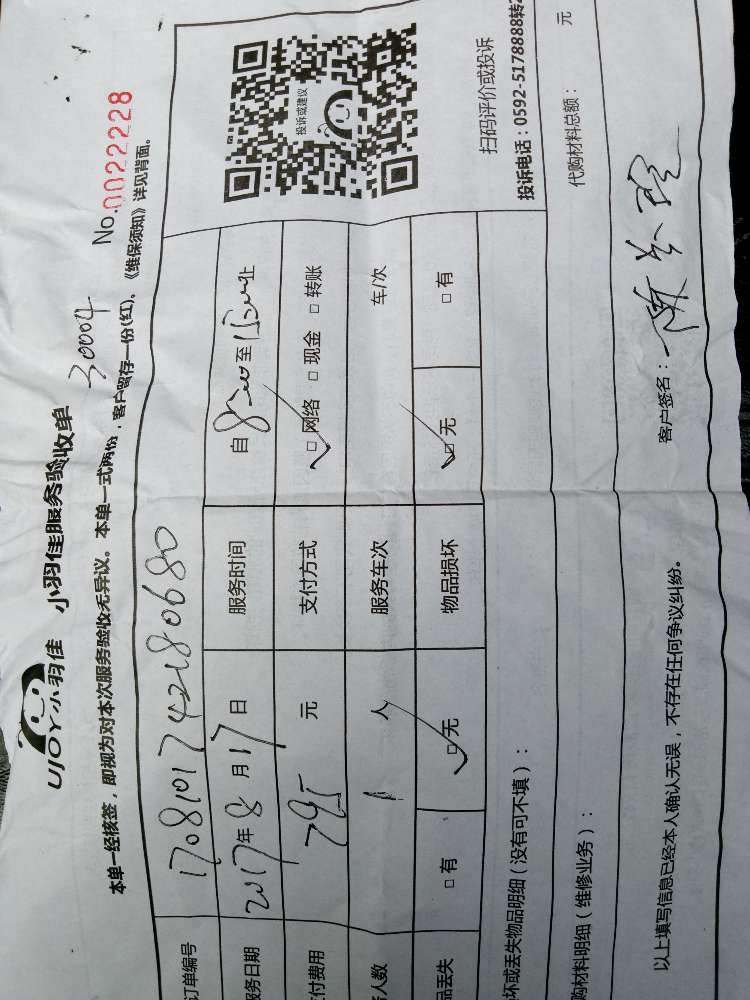 UJOY小羽佳 小羽佳服务验收单 30004 No.0022228
本单一经核签，即视为对本次服务验收无异议。本单一式两份，客户留存一份(红)。《维保须知》详见背面。
订单编号 1708101742180680
服务日期 2017年8月17日 服务时间 自 至 止
付费用 元 支付方式 ☑网络 □现金 □转账
人数 1人 服务车次 车/次
品丢失 □有 ☑无 物品损坏 ☑无 □有
投诉或建议
扫码评价或投诉
投诉电话：0592-5178888转2
坏或丢失物品明细（没有可不填）：
购材料明细（维修业务）： 代购材料总额： 元
以上填写信息已经本人确认无误，不存在任何争议纠纷。 客户签名：